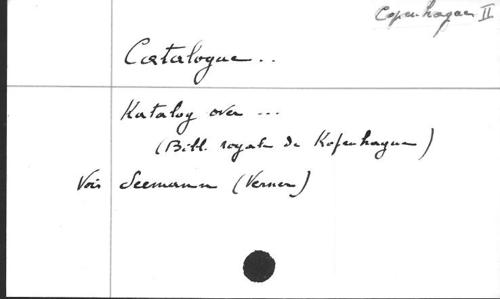 Copenhague II
Catalogue ..
Katalog over ...
(Bibl. royale de Kopenhague)
Voir Seemann (Verner)